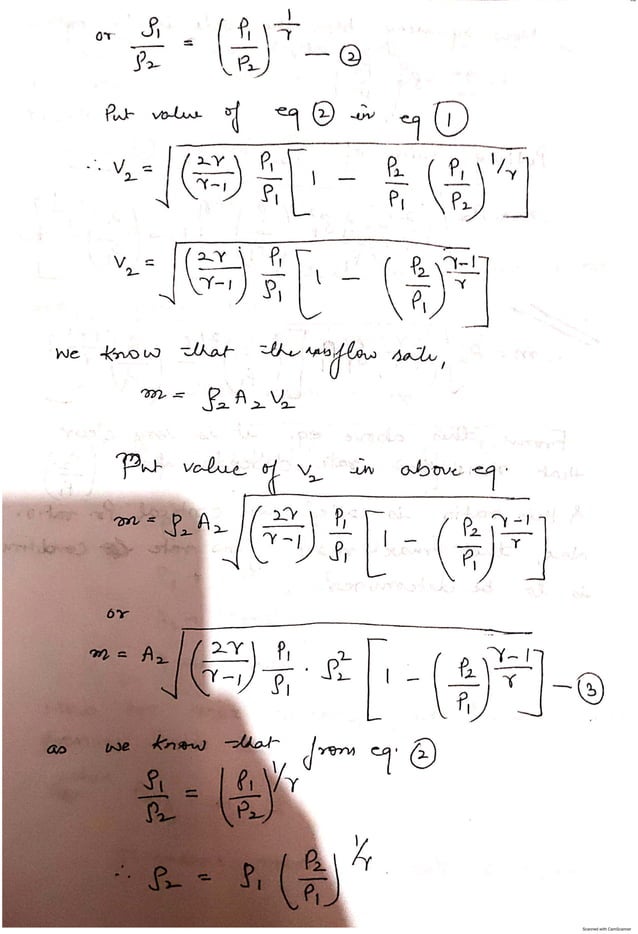 or ρ₁/ρ₂ = (P₁/P₂)^(1/γ) — ②
Put value of eq ② in eq ①
∴ V₂ = √((2γ/γ-1) P₁/ρ₁ [1 - P₂/P₁ (P₁/P₂)^(1/γ)])
V₂ = √((2γ/γ-1) P₁/ρ₁ [1 - (P₂/P₁)^(γ-1/γ)])
we know that the massflow rate,
m = ρ₂ A₂ V₂
Put value of V₂ in above eq.
m = ρ₂ A₂ √((2γ/γ-1) P₁/ρ₁ [1 - (P₂/P₁)^(γ-1/γ)])
or
m = A₂ √((2γ/γ-1) P₁/ρ₁ . ρ₂² [1 - (P₂/P₁)^(γ-1/γ)]) — ③
as we know that from eq. ②
ρ₁/ρ₂ = (P₁/P₂)^(1/γ)
∴ ρ₂ = ρ₁ (P₂/P₁)^(1/γ)
Scanned with CamScanner